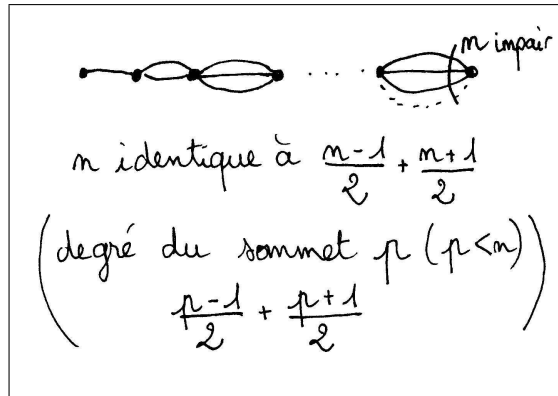 n impair
n identique à (n-1)/2 + (n+1)/2
(degré du sommet p (p<n)
(p-1)/2 + (p+1)/2)